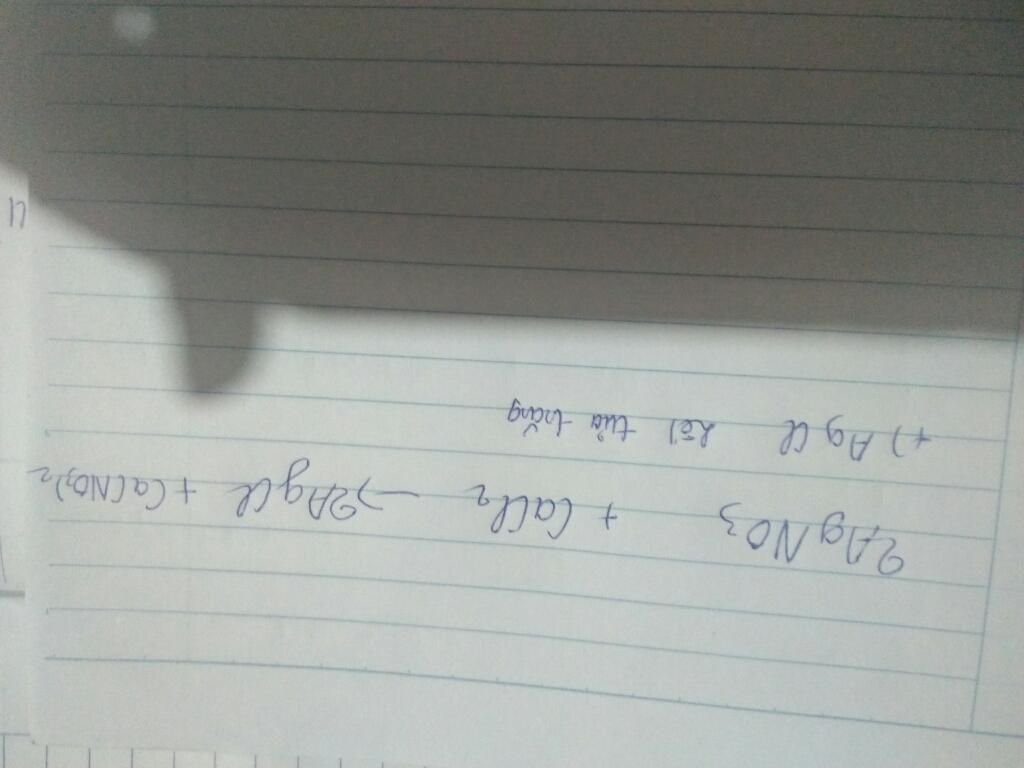 2AgNO3 + CaCl2 → 2AgCl + Ca(NO3)2
+) AgCl kết tủa trắng